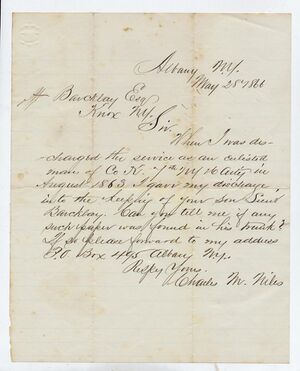 Albany N.Y.
May 28th 1866
Barckley Esq
Knox N.Y.
Sir.
When I was dis-
charged the service as an enlisted
man of Co K. 7th N.Y. H Arty in
August 1863, I gave my discharge
into the keeping of your son Lieut
Barckley. Can you tell me if any
such paper was found in his trunk?
If so please forward to my address
P.O. Box 495 Albany N.Y.
Respfy Yours.
Charles M. Niles